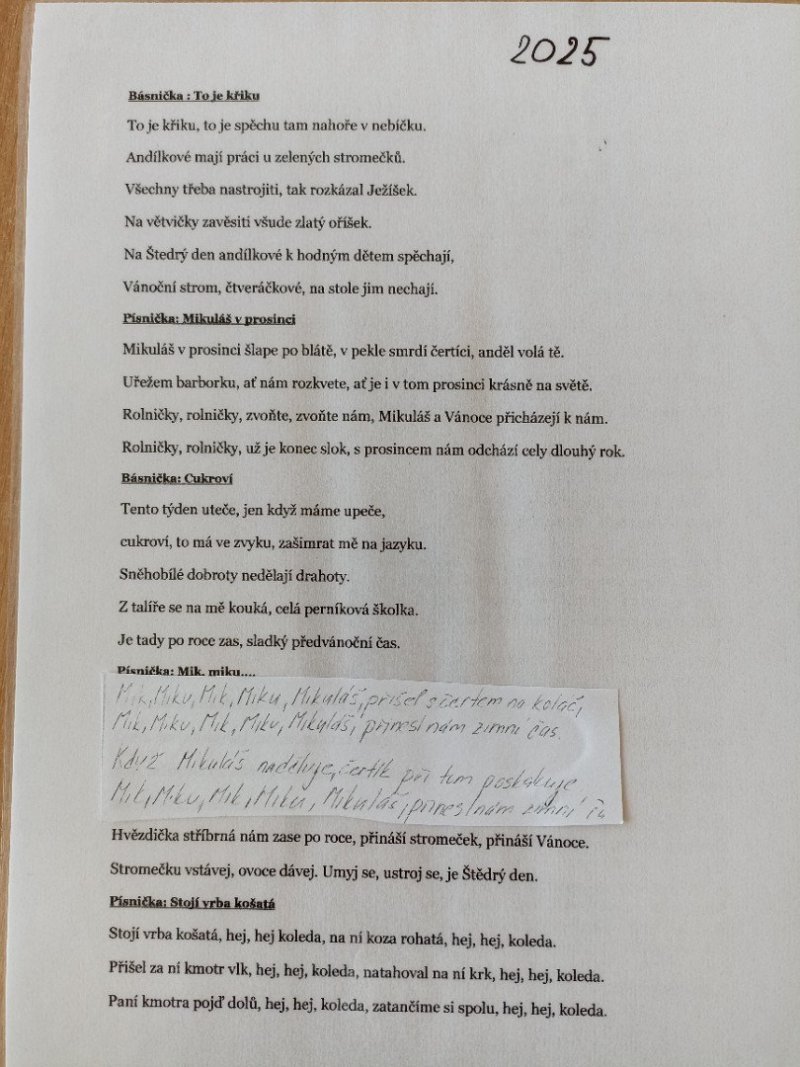 2025
Básnička : To je křiku
To je křiku, to je spěchu tam nahoře v nebíčku.
Andílkové mají práci u zelených stromečků.
Všechny třeba nastrojiti, tak rozkázal Ježíšek.
Na větvičky zavěsiti všude zlatý oříšek.
Na Štedrý den andílkové k hodným dětem spěchají,
Vánoční strom, čtveráčkové, na stole jim nechají.
Písnička: Mikuláš v prosinci
Mikuláš v prosinci šlape po blátě, v pekle smrdí čertíci, anděl volá tě.
Uřežem barborku, ať nám rozkvete, ať je i v tom prosinci krásně na světě.
Rolničky, rolničky, zvoňte, zvoňte nám, Mikuláš a Vánoce přicházejí k nám.
Rolničky, rolničky, už je konec slok, s prosincem nám odchází cely dlouhý rok.
Básnička: Cukroví
Tento týden uteče, jen když máme upeče,
cukroví, to má ve zvyku, zašimrat mě na jazyku.
Sněhobílé dobroty nedělají drahoty.
Z talíře se na mě kouká, celá perníková školka.
Je tady po roce zas, sladký předvánoční čas.
Písnička: Mik, miku....
Mik, Miku, Mik, Miku, Mikuláš, přišel s čertem na koláč,
Mik, Miku, Mik, Miku, Mikuláš, přinesl nám zimní čas.
Když Mikuláš naděluje, čertík při tom poskakuje
Mik, Miku, Mik, Miku, Mikuláš, přinesl nám zimní
Hvězdička stříbrná nám zase po roce, přináší stromeček, přináší Vánoce.
Stromečku vstávej, ovoce dávej. Umyj se, ustroj se, je Štědrý den.
Písnička: Stojí vrba košatá
Stojí vrba košatá, hej, hej koleda, na ní koza rohatá, hej, hej, koleda.
Přišel za ní kmotr vlk, hej, hej, koleda, natahoval na ní krk, hej, hej, koleda.
Paní kmotra pojď dolů, hej, hej, koleda, zatančíme si spolu, hej, hej, koleda.